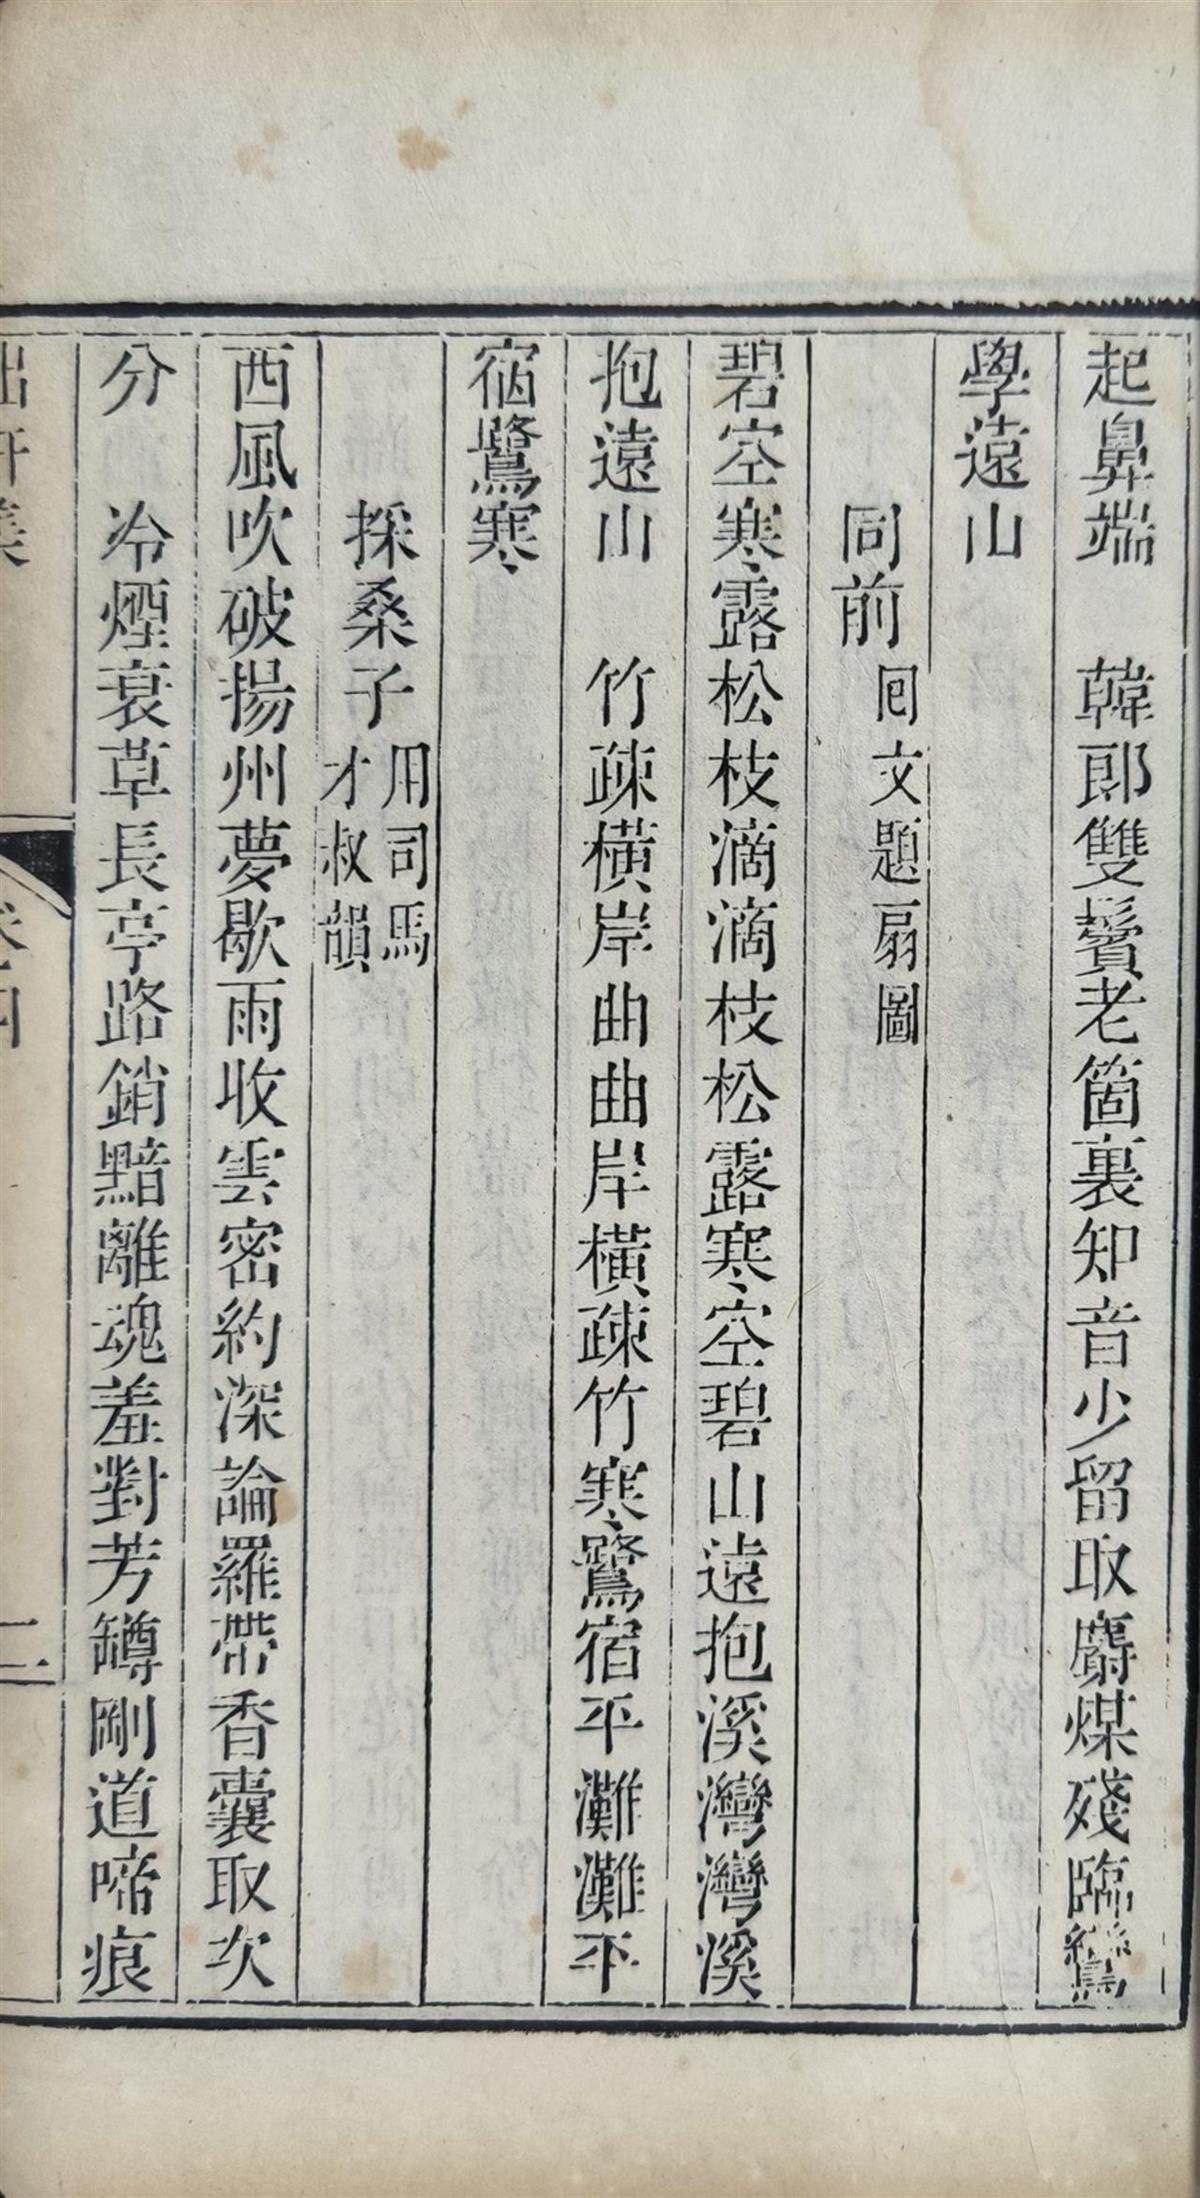 起鼻端　韓郎雙鬢老箇裏知音少留取麝煤殘臨鸞
學遠山
同前回文題扇圖
碧空寒露松枝滴滴枝松露寒空碧山遠抱溪灣灣溪
抱遠山　竹疎橫岸曲曲岸橫疎竹寒鷺宿平灘灘平
宿鷺寒
採桑子用司馬才叔韻
西風吹破揚州夢歇雨收雲密約深論羅帶香囊取次
分　冷煙衰草長亭路銷黯離魂羞對芳罇剛道啼痕